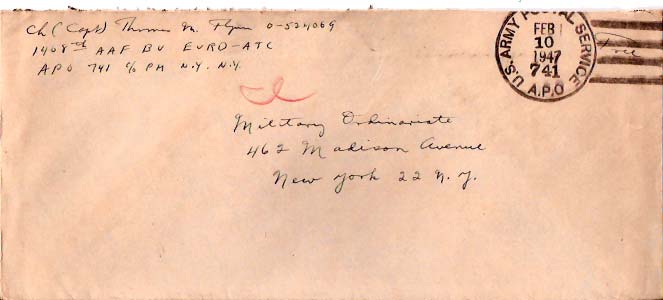 Ch (Capt) Thomas M. Flynn O-524069
1408th AAF BU EURO-ATC
APO 741 c/o PM N.Y. N.Y.
U.S. ARMY POSTAL SERVICE
FEB
10
1947
741
A.P.O
Free
Military Ordinariate
462 Madison Avenue
New York 22 N.Y.